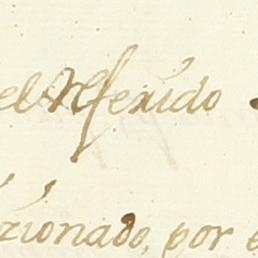 el Referido
zionado, por e